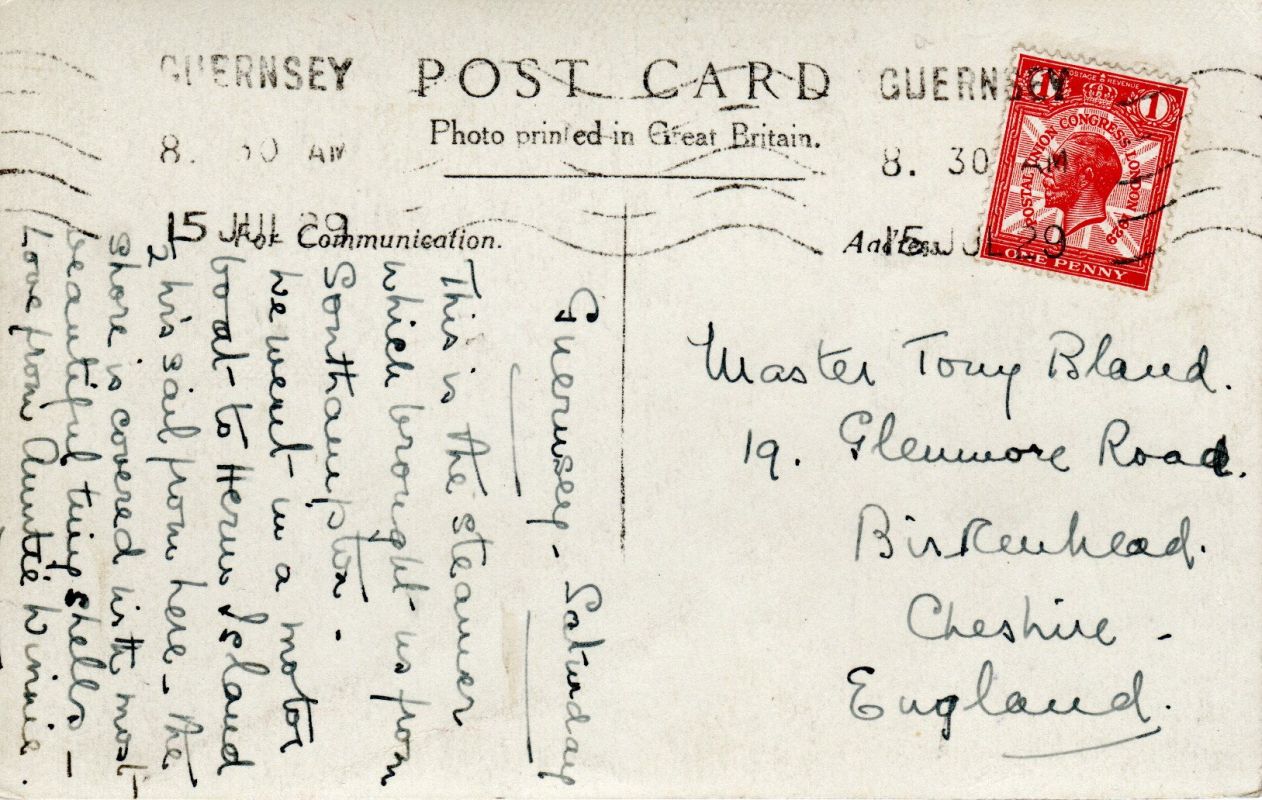 POST CARD
Photo printed in Great Britain.
GUERNSEY
8. 30 AM
15 JUL 29
GUERNSEY
8. 30 AM
15 JUL 29
1 POSTAGE & REVENUE 1
POSTAL UNION CONGRESS LONDON 1929
ONE PENNY
For Communication.
Address
Guernsey - Saturday
This is the steamer
which brought us from
Southampton.
We went in a motor
boat to Herm Island
½ hr's sail from here - the
shore is covered with most
beautiful tiny shells -
Love from Auntie Winnie.
Master Tony Bland.
19. Glenmore Road.
Birkenhead.
Cheshire -
England.